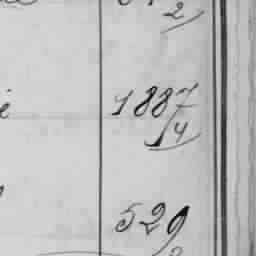 2
1887
4
529